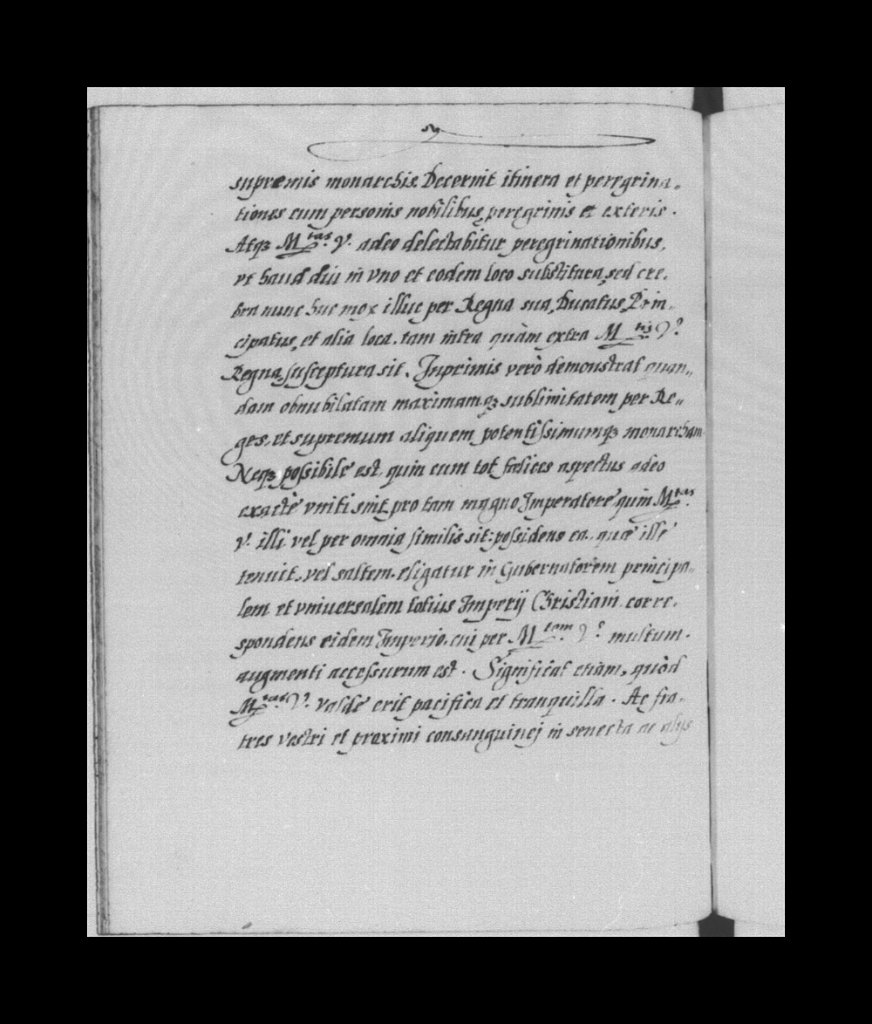 supremis monarchis. Decernit itinera et peregrina„
tiones cum personis nobilibus, peregrinis et exteris.
Atqȝ M.tas V. adeo delectabitur peregrinationibus,
vt haud diu in vno et eodem loco substitura, sed cre.
bra nunc huc mox illuc per Regna sua, Ducatus, Prin„
cipatus, et alia loca, tam intra quàm extra M.tis V.
Regna, susceptura sit. Inprimis verò demonstrat quan„
dam obnubilatam maximamqȝ sublimitatem per Re„
ges, et supremum aliquem potentissimumqȝ monarcham
Neqȝ possibile est, quin cum tot felices aspectus adeo
exactè vniti sint, pro tam magno Imperatore quin M.tas
V. illi vel per omnia similis sit: possidens ea, quæ ille
tenuit, vel saltem eligatur in Gubernatorem principa„
lem et vniuersalem totius Imperij Christiani corre„
spondens eidem Imperio, cui per M.tem V. multum
augmenti accessurum est. Significat etiam, quòd
M.tas V. valde erit pacifica et tranquilla. Ac fra„
tres vestri et proximi consanguinej in senecta ac alijs